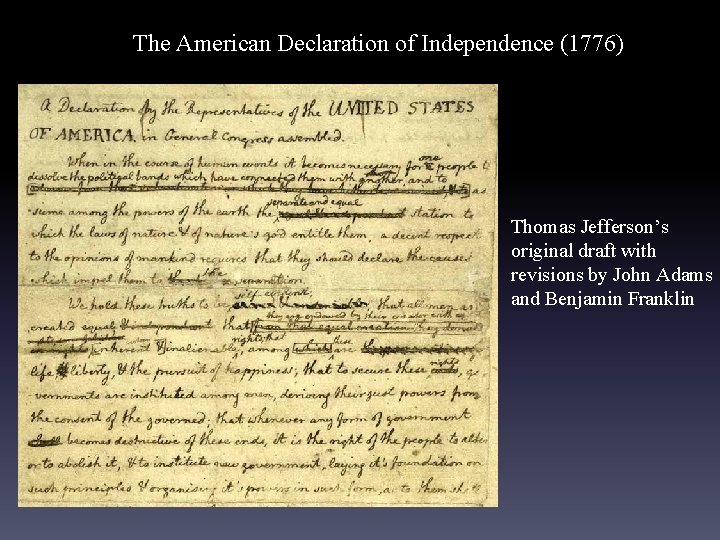 The American Declaration of Independence (1776)
a Declaration by the Representatives of the UNITED STATES
OF AMERICA, in General Congress assembled.
When in the course of human events it becomes necessary for one people to
dissolve the political bands which have connected them with another, and to
as-
separate and equal
-sume among the powers of the earth the station to
which the laws of nature & of nature's god entitle them, a decent respect
to the opinions of mankind requires that they should declare the causes
which impel them to the separation.
self-evident;
We hold these truths to be that all men are
they are endowed by their creator with
created equal & independant that from that equal creation they derive
rights; that these
inherent & inalienable among which are
life & liberty, & the pursuit of happiness; that to secure these rights, go-
-vernments are instituted among men, deriving their just powers from
the consent of the governed; that whenever any form of government
becomes destructive of these ends, it is the right of the people to alter
or to abolish it, & to institute new government, laying it's foundation on
such principles & organising it's powers in such form, as to them sh
Thomas Jefferson's
original draft with
revisions by John Adams
and Benjamin Franklin